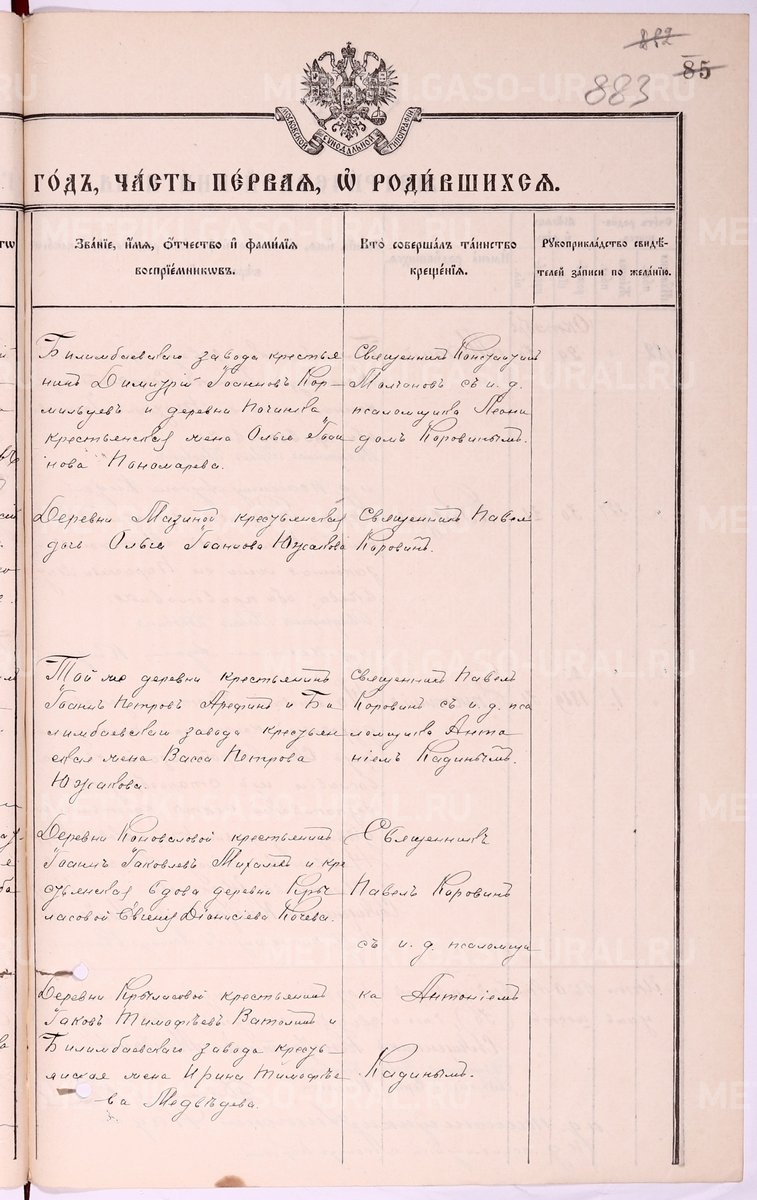 882
85
883
МОСКОВСКОЙ СѴНОДАЛЬНОЙ ТИПОГРАФІИ
ГО́ДЪ, ЧА́СТЬ ПЕ́РВАЯ, Ѽ РОДИ́ВШИХСЯ.
Зва́нїе, и҆́мя, ѻ҆́тчество и҆ фами́лїя
воспрїе́мникѡвъ.
Кто̀ соверша́лъ та́инство
креще́нїя.
Рꙋкоприкла́дство свидѣ́-
телей за́писи по жела́нїю.
Билимбаевскаго завода крестья
нинъ Димитрій Іоанновъ Кор-
мильцевъ и деревни Починка
крестьянская жена Ольга Іоан
нова Пономарева.
Священникъ Константинъ
Молчановъ съ и. д.
псаломщика Леони
домъ Коровинымъ.
Деревни Мазиной крестьянская
дочь Ольга Іоаннова Южакова
Священникъ Павелъ
Коровинъ.
Той же деревни крестьянинъ
Іоаннъ Петровъ Арефинъ и Би
лимбаевскаго завода крестьян
ская жена Васса Петрова
Южакова.
Священникъ Павелъ
Коровинъ съ и. д. пса
ломщика Анто
ніемъ Кадинымъ.
Деревни Коноваловой крестьянинъ
Іоаннъ Іаковлевъ Михалевъ и кре
стьянская вдова деревни Кры
ласовой Евгенія Діонисіева Кочева.
Священникъ
Павелъ Коровинъ
съ и. д. псаломщи
Деревни Крыласовой крестьянинъ
Іаковъ Тимофѣевъ Ватолинъ и
Билимбаевскаго завода кресть-
янская жена Ирина Тимофѣе-
ва Медвѣдева.
ка Антоніемъ
Кадинымъ.
METRIKI.GASO-URAL.RU